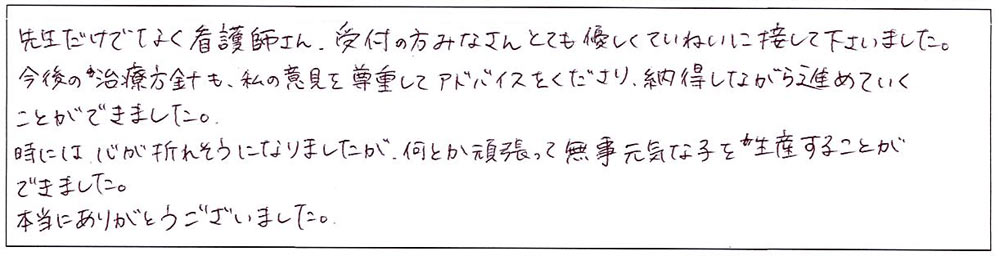 先生だけでなく看護師さん、受付の方みなさんとても優しくていねいに接して下さいました。
今後の治療方針も、私の意見を尊重してアドバイスをくださり、納得しながら進めていく
ことができました。
時には心が折れそうになりましたが、何とか頑張って無事元気な子を生産することが
できました。
本当にありがとうございました。